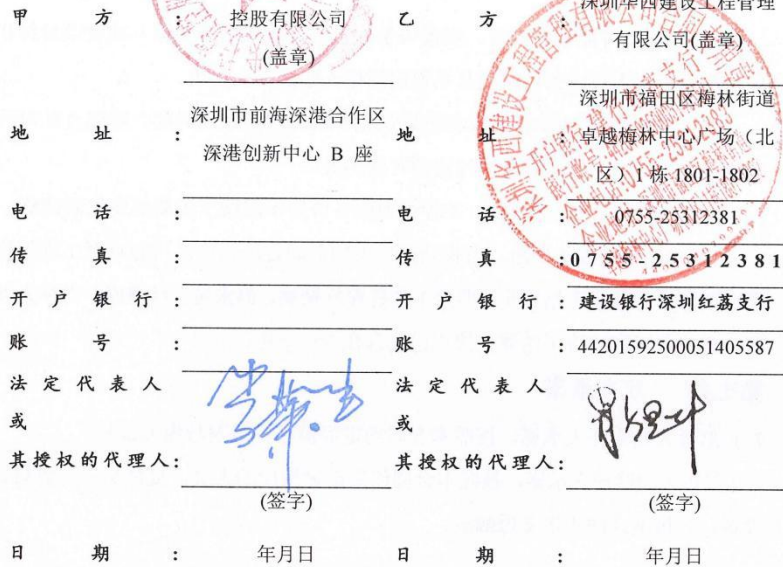 甲 方 : 控股有限公司
(盖章)
地 址 : 深圳市前海深港合作区
深港创新中心 B 座
电 话 :
传 真 :
开 户 银 行 :
账 号 :
法 定 代 表 人
或
其授权的代理人:
(签字)
日 期 : 年月日
乙 方 : 深圳华西建设工程管理
有限公司(盖章)
地 址 : 深圳市福田区梅林街道
卓越梅林中心广场（北
区）1 栋 1801-1802
电 话 : 0755-25312381
传 真 : 0755-25312381
开 户 银 行 : 建设银行深圳红荔支行
账 号 : 44201592500051405587
法 定 代 表 人
或
其授权的代理人:
(签字)
日 期 : 年月日
深圳华西建设工程管理有限公司